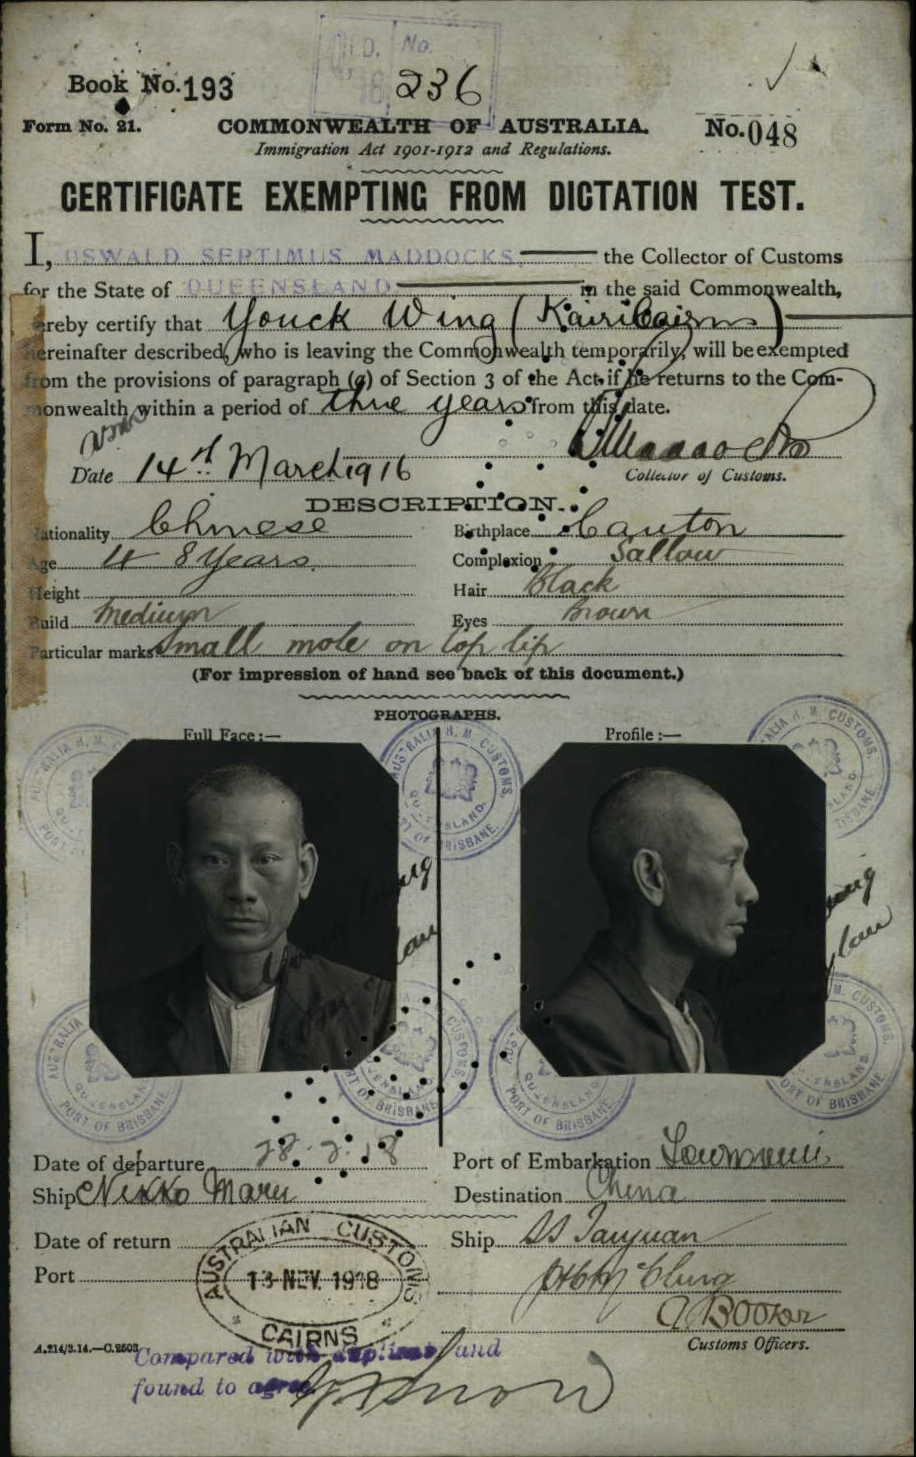 OLD. No.
Book No. 193
236
Form No. 21.
COMMONWEALTH OF AUSTRALIA.
No. 048
Immigration Act 1901-1912 and Regulations.
CERTIFICATE EXEMPTING FROM DICTATION TEST.
I, OSWALD SEPTIMUS MADDOCKS, the Collector of Customs
for the State of QUEENSLAND in the said Commonwealth,
hereby certify that Youck Wing (Kairi Cairns)
hereinafter described, who is leaving the Commonwealth temporarily, will be exempted
from the provisions of paragraph (a) of Section 3 of the Act if he returns to the Com-
monwealth within a period of three years from this date.
Date 14th March 1916
Collector of Customs.
DESCRIPTION.
Nationality Chinese
Birthplace Canton
Age 48 Years
Complexion Sallow
Height
Hair Black
Build Medium
Eyes Brown
Particular marks Small mole on top lip
(For impression of hand see back of this document.)
PHOTOGRAPHS.
Full Face:—
Profile:—
AUSTRALIA H. M. CUSTOMS.
QUEENSLAND.
PORT OF BRISBANE.
Date of departure 28.2.18
Port of Embarkation
Ship Nikko Maru
Destination China
Date of return
Ship SS Taiyuan
Port
AUSTRALIAN CUSTOMS
13 NOV. 1918
CAIRNS
Customs Officers.
A.214/3.14.—C.2503.
Compared with duplicate and
found to agree